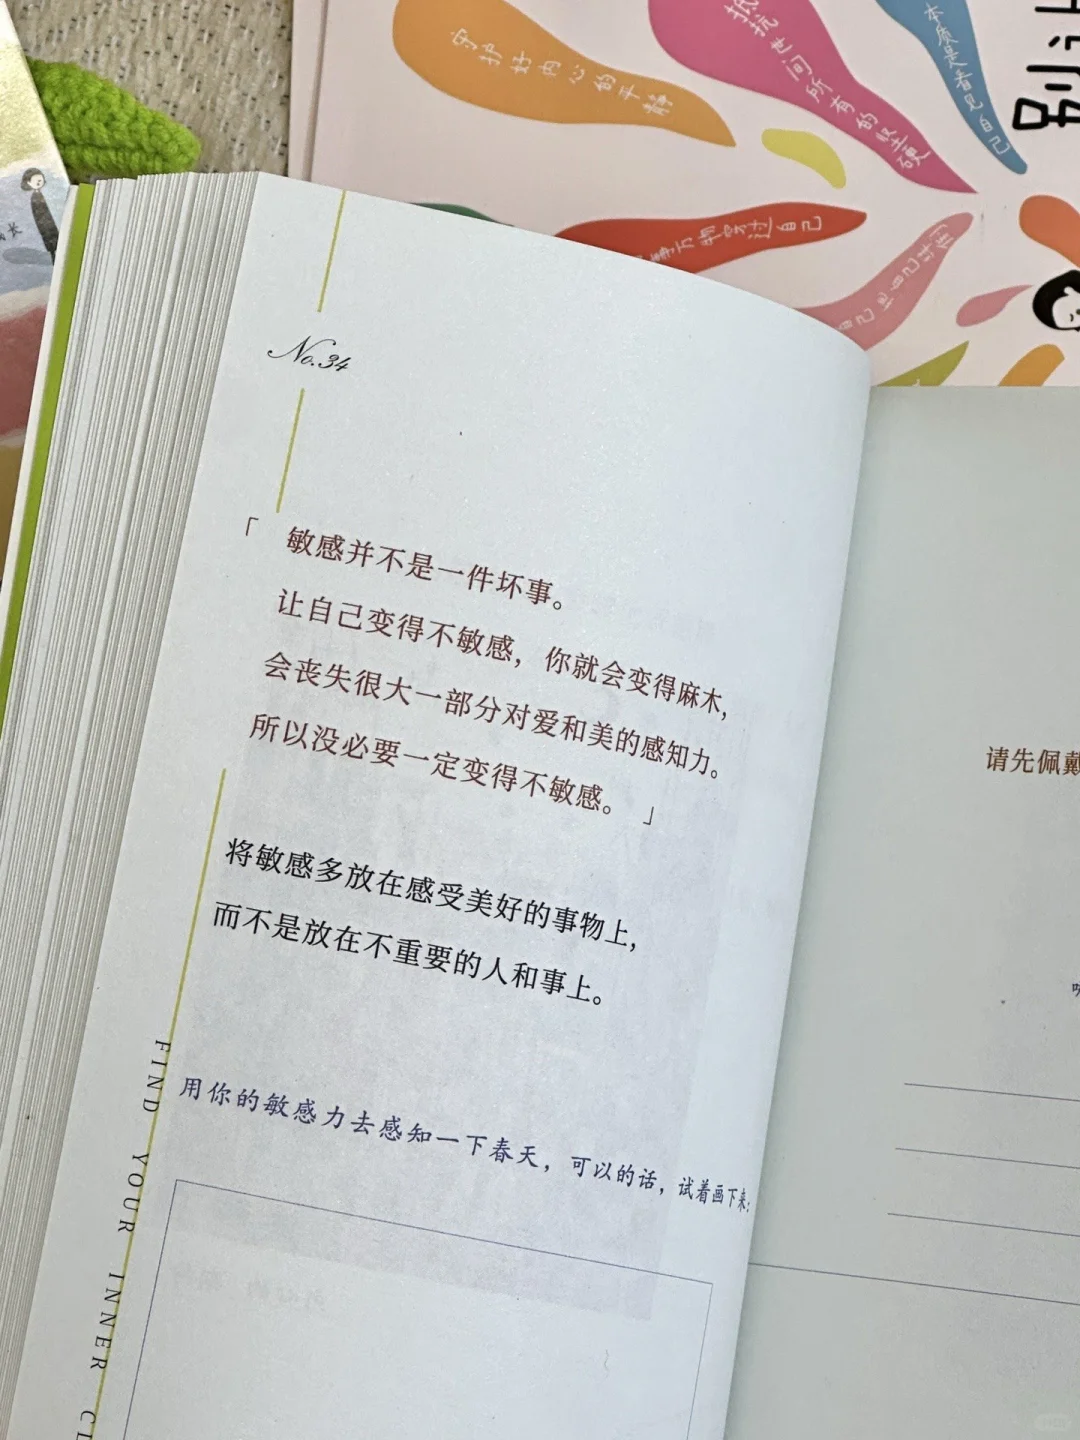 守护好内心的平静
抵抗世间所有的坚硬
本质是看见自己
万物穿过自己
长
No.34
「 敏感并不是一件坏事。
让自己变得不敏感，你就会变得麻木，
会丧失很大一部分对爱和美的感知力。
所以没必要一定变得不敏感。」
将敏感多放在感受美好的事物上，
而不是放在不重要的人和事上。
用你的敏感力去感知一下春天，可以的话，试着画下来：
FIND YOUR INNER
请先佩戴